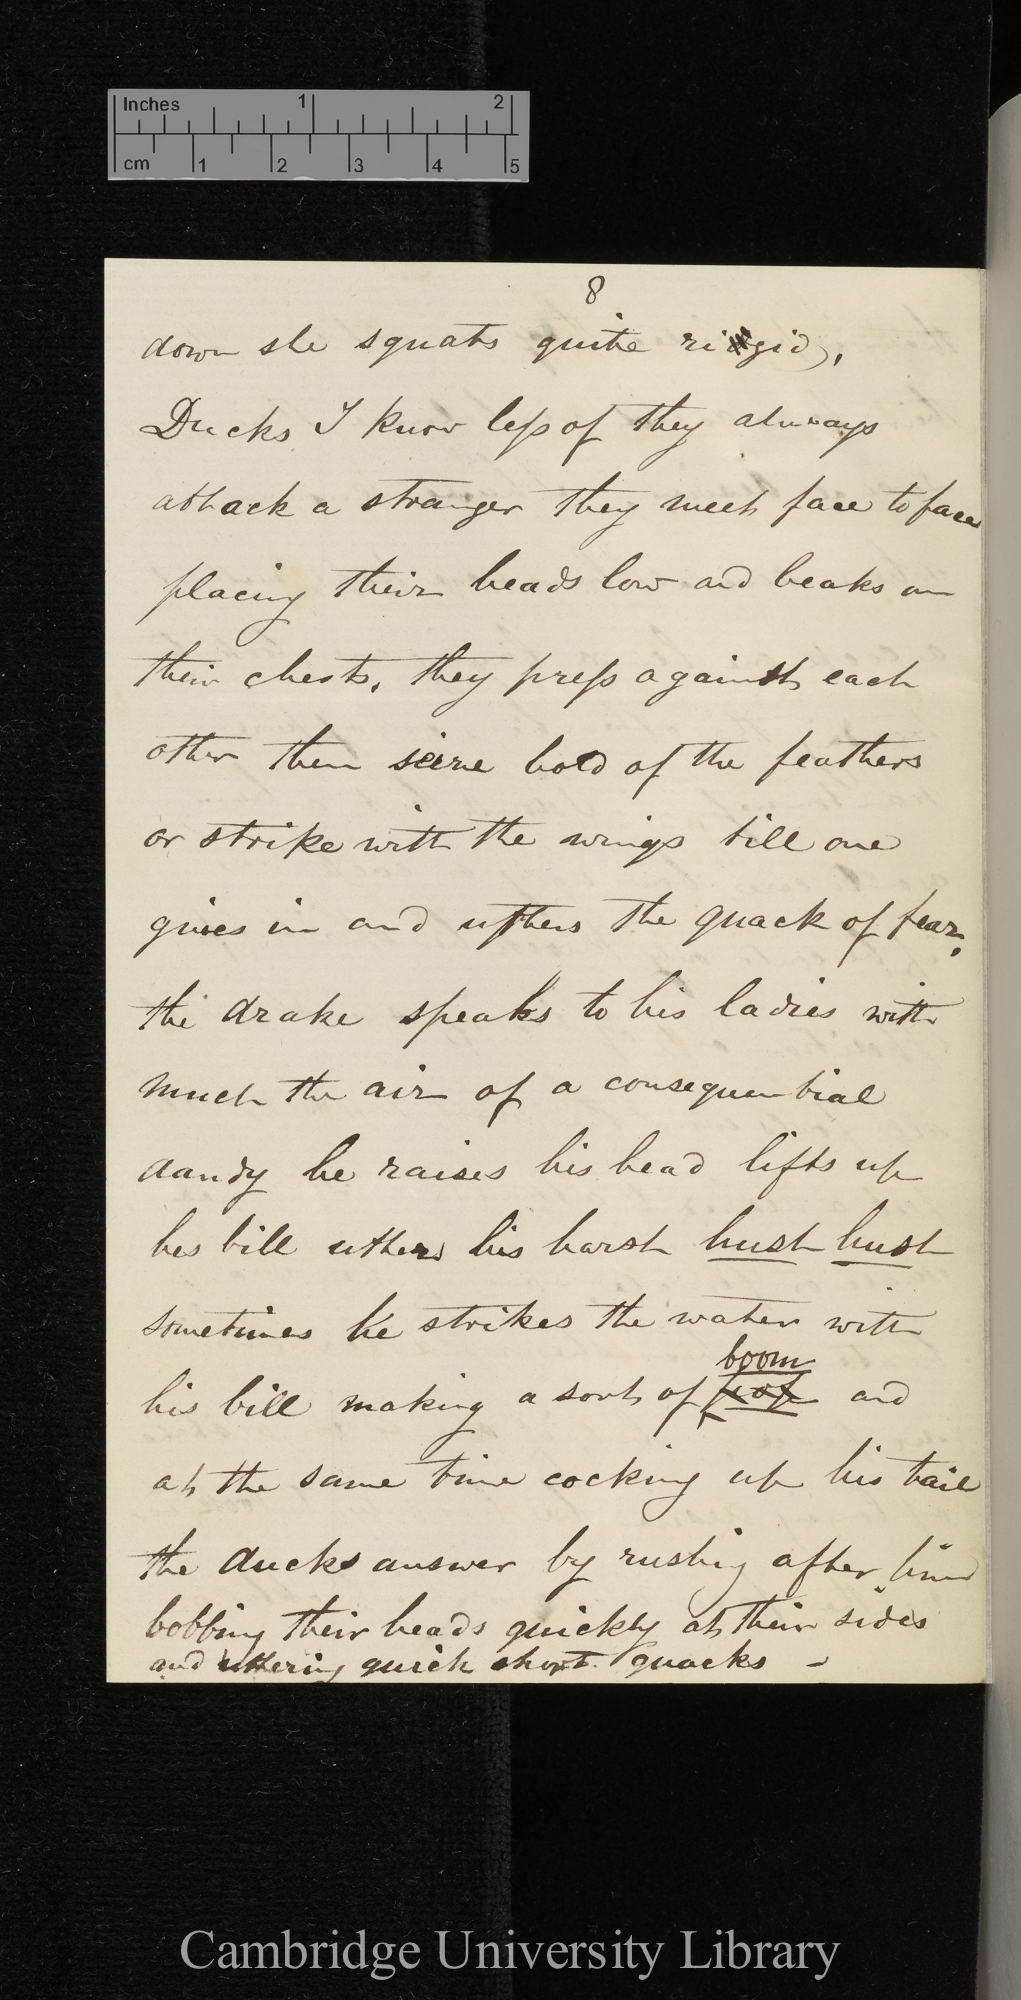 Inches 1 2
cm 1 2 3 4 5
8
down she squats quite rigid,
Ducks I know less of they always
attack a stranger they meet face to face
placing their heads low and beaks on
their chests, they press against each
other then seize hold of the feathers
or strike with the wings till one
gives in and utters the quack of fear,
the drake speaks to his ladies with
much the air of a consequential
dandy he raises his head lifts up
his bill utters his harsh hush hush
sometimes he strikes the water with
boom
his bill making a sort of and
at the same time cocking up his tail
the ducks answer by rushing after him
bobbing their heads quickly at their sides
and uttering quick short quacks –
Cambridge University Library